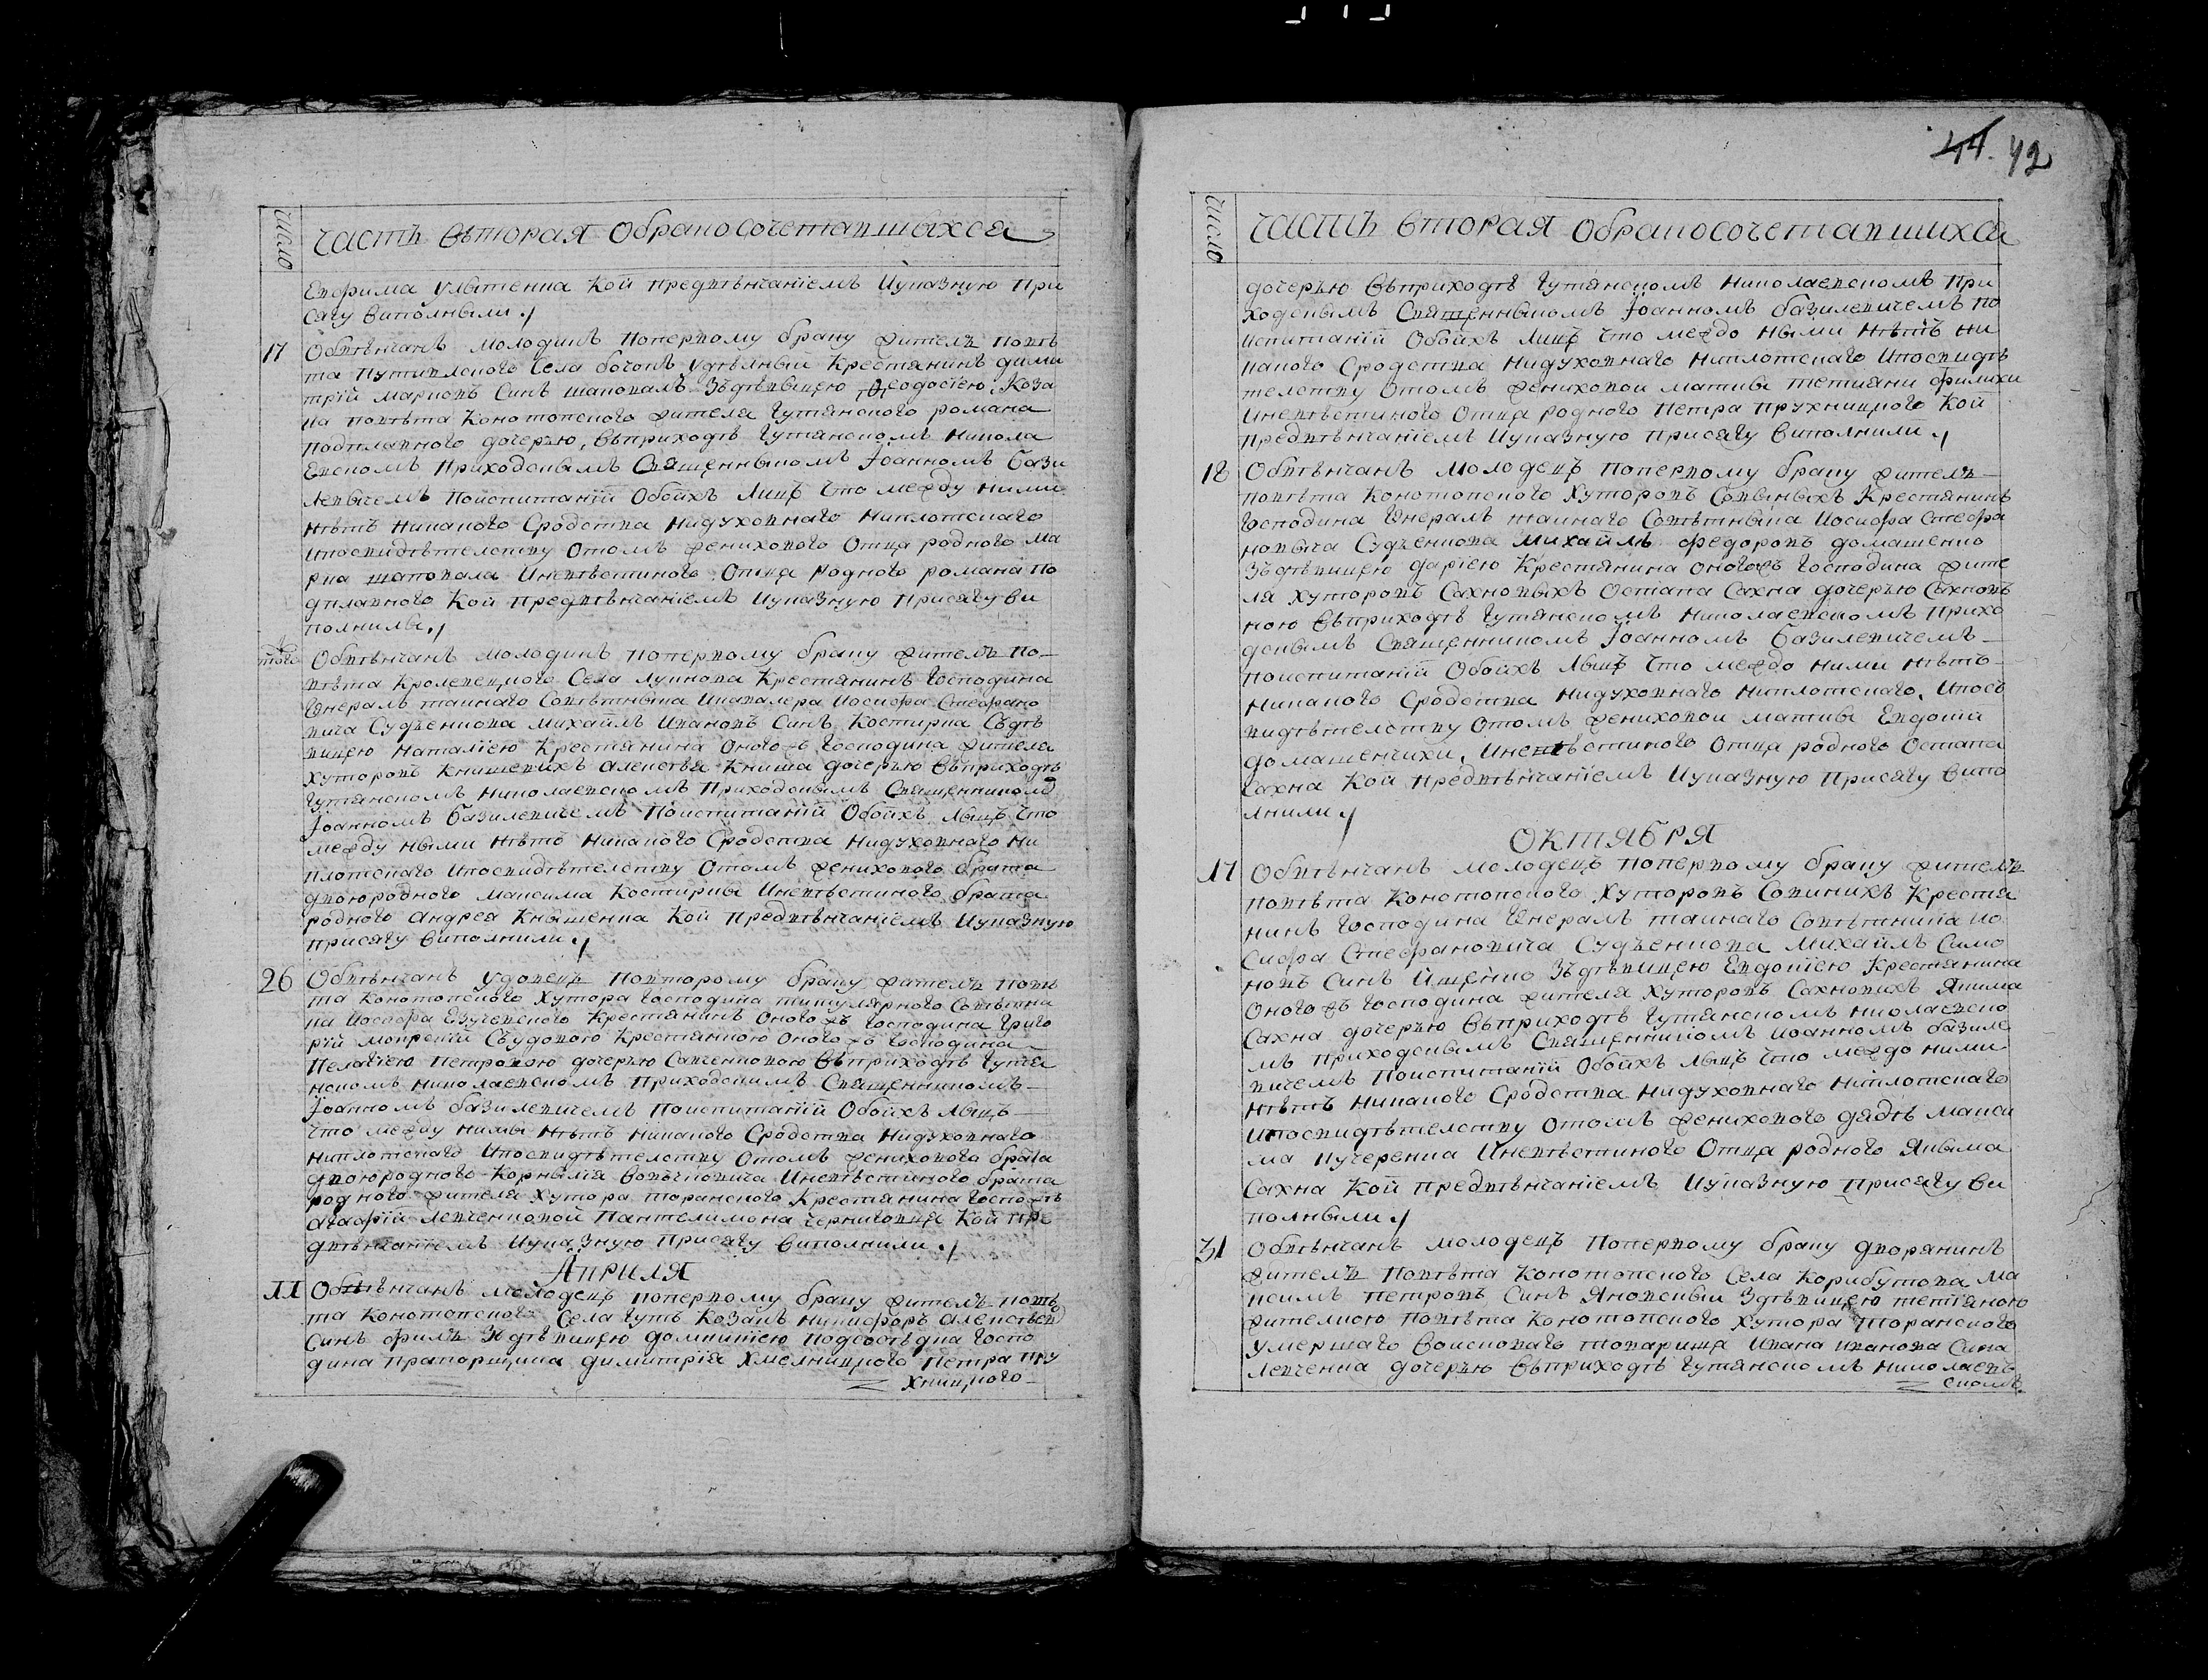 44. 42
число
часть вторая Обракосочетавшыхся
Евфима Улытенка Кой предвѣнчаніемъ Иуказную При
сягу виполныли ./
17
Обвѣнчанъ молодикъ Поперкому браку житель повѣ
та Путивлского Села бочокъ удѣлный Крестянинъ дими
трій Марковъ Синъ шаповалъ Зъдѣвыцею Ѳеодосіею: Коза
ка повѣта Конотопского жителя Гутянского романа
подплавного дочерью, Въприходѣ Гутянскомъ Никола
Евскомъ Приходскымъ Священныкомъ Іоанномъ Бази
левычемъ Поиспитаній Обойхъ Лицъ Что между Ними
Нѣтъ Никакого Сродства Нидуховнаго Ниплотскаго
Ипосвидѣтелству Отомъ женихового Отца родного Ма
рка шаповала Иневѣстиного Отца родного романа по
дплавного Кой Предвѣнчаніемъ Иуказную Присягу ви
полнилы ./
того
Обвѣнчанъ молодикъ Поперкому браку житель по
вѣта Кролевецкого Села Лукнова Крестянинъ Господина
Генералъ таинаго Совѣтныка Икавалера Иосифа Стефано
вича Судъенкова Михайлъ Ивановъ Синъ Костирка Съдѣ
вицею Наталіею Крестянина Оного жъ Господина жителя
хуторовъ Книшевихъ Алексѣя Книша дочерью Въприходѣ
Гутянскомъ Николаевскомъ Приходскымъ Священникомъ
Іоанномъ Базилевичемъ Поиспитаній Обойхъ Лыцъ Что
между ными Нѣтъ Никакого Сродства Нидуховнаго Ни
плотскаго Ипосвидѣтелству Отомъ женихового брата
двоюродного Максима Костирки Иневѣстиного брата
родного Андрея Кнышенка Кой Предвѣнчаніемъ Иуказную
присягу виполнили ./
26
Обвѣнчанъ удовецъ Повторому браку житель повѣ
та Конотопского Хутора Господина титулярного Совѣтни
ка Иосифа Езучевского Крестянинъ Оного жъ Господина Григо
рій Мокрегій Съудовою Крестянкою Оного жъ Господина
Пелагіею Петровою дочерью Савченковою Въприходѣ Гутя
нскомъ Николаевскомъ Приходскимъ Священникомъ
Іоанномъ базилевичемъ Поиспитаній Обойхъ Лыцъ
Что между нимы Нѣтъ Никакого Сродства Нидуховнаго
Ниплотскаго Ипосвидѣтелству Отомъ женихового брата
двоюродного Корныля Вовчковича Иневѣстиного брата
родного жителя Хутора торанского Крестянина Госпожѣ
Агафіи Левченковой Пантелимона черниговца Кой пре
двѣнчаніемъ Иуказную Присягу виполнили ./
Априля
11
Обвѣнчанъ молодецъ поперкому браку житель повѣ
та Конотопского Села Гутъ Козакъ Никифоръ Алексѣевъ
Синъ филь Здѣвицею домникіею подсосѣдка Госпо
дина прапорщика димитрія Хмелницкого Петра Пру
хницкого
число
часть вторая Обракосочетавшихся
дочерью Въприходѣ Гутянскомъ Николаевскомъ При
ходскымъ Священныкомъ Іоанномъ базилевичемъ по
испитаній Обойхъ Лицъ Что между ными Нѣтъ ни
какого Сродства Нидуховнаго Ниплотскаго Ипосвидѣ
телству Отомъ жениховои матки тетияни филихи
Иневѣстиного Отца родного Петра Прухницкого Кой
предвѣнчаніемъ Иуказную присягу виполнили ./
18
Обвѣнчанъ молодецъ поперкому браку житель
повѣта Конотопского Хуторовъ Совиныхъ Крестянинъ
Господина Генералъ таинаго Совѣтныка Иосифа Стефа
новыча Судъенкова Михайлъ федоровъ домашенко
Зъдѣвицею даріею Крестянина оногожъ Господина жите
ля Хуторовъ Сахновыхъ Остапа Сахна дочерью Сахновъ
ною Въприходѣ Гутянскомъ Николаевскомъ Прихо
дскымъ Священникомъ Іоанномъ Базилевичемъ
Поиспитаній Обойхъ Лыцъ Что междо ними Нѣтъ
Никакого Сродства Нидуховнаго Ниплотскаго, Ипосъ
видѣтелству Отомъ жениховои матки Евдокій
домашенчихи, Иневѣстиного Отца родного Остапа
Сахна Кой Предвѣнчаніемъ Иуказную Присягу випо
лнили ./
ОКТЯБРЯ
17
Обвѣнчанъ молодецъ поперкому браку житель
повѣта Конотопского Хуторовъ Совиникъ Крестя
нинъ Господина Генералъ таинаго Совѣтника Ио
сифа Стефановича Судъенкова Михайлъ Симо
новъ Синъ Ищенко Зъдѣвицею Евдокіею Крестянина
Оного жъ Господина жителя Хуторовъ Сахновихъ Якима
Сахна дочерью Въприходѣ Гутянскомъ Николаевско
мъ приходскымъ Священникомъ Иоанномъ базиле
вичемъ Поиспитаній Обойхъ Лыцъ Что междо ними
Нѣтъ Никакого Сродства Нидуховнаго Ниплотскаго
Ипосвидѣтелству Отомъ женихового дядѣ Макси
ма Кучеренка Иневѣстиного Отца родного Якыма
Сахна Кой предвѣнчаніемъ Иуказную присягу ви
полныли ./
31
Обвѣнчанъ молодецъ Поперкому браку дворянинъ
житель Повѣта Конотопского Села Корибутова Ма
ксимъ Петровъ Синъ Яновскый Здѣвицею тетіяною
жителкою повѣта Конотопского Хутора Торанского
умершаго Воисковаго товарища Ивана Иванова Сина
Левченка дочерью Въприходѣ Гутянскомъ Николаевъ
скомъ